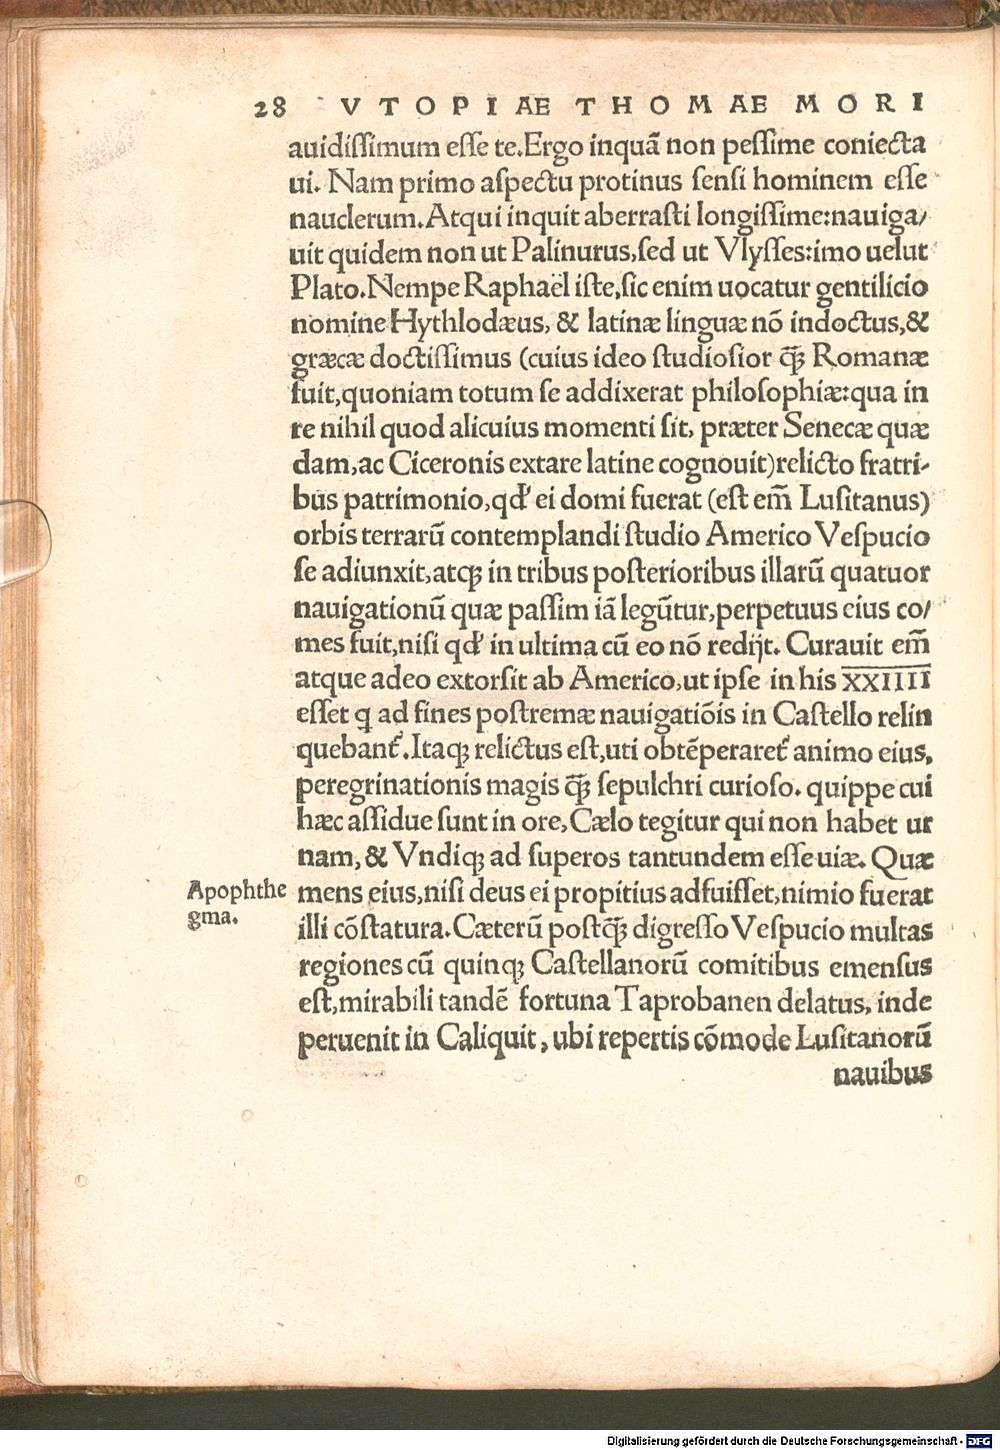 28 VTOPIAE THOMAE MORI
auidiſſimum eſſe te.Ergo inquã non peſſime coniecta
ui. Nam primo aſpectu protinus ſenſi hominem eſſe
nauclerum.Atqui inquit aberraſti longiſſime:nauiga/
uit quidem non ut Palinurus,ſed ut Vlyſſes:imo uelut
Plato.Nempe Raphaël iſte,ſic enim uocatur gentilicio
nomine Hythlodæus, & latinæ linguæ nõ indoctus,&
græcæ doctiſſimus (cuius ideo ſtudioſior q̃ꝫ Romanæ
fuit,quoniam totum ſe addixerat philoſophiæ:qua in
re nihil quod alicuius momenti ſit, præter Senecæ quæ
dam,ac Ciceronis extare latine cognouit)relicto fratri-
bus patrimonio,qd' ei domi fuerat (eſt em̃ Luſitanus)
orbis terrarũ contemplandi ſtudio Americo Veſpucio
ſe adiunxit,atqꝫ in tribus poſterioribus illarũ quatuor
nauigationũ quæ paſſim iã legũtur,perpetuus eius co/
mes fuit,niſi qd' in ultima cũ eo nõ redijt. Curauit em̃
atque adeo extorſit ab Americo,ut ipſe in his X̅X̅I̅I̅I̅I̅
eſſet q ad fines poſtremæ nauigatiõis in Caſtello relin
quebant᷑.Itaqꝫ relictus eſt,uti obtẽperaret᷑ animo eius,
peregrinationis magis q̃ꝫ ſepulchri curioſo. quippe cui
hæc aſſidue ſunt in ore,Cælo tegitur qui non habet ur
nam, & Vndiqꝫ ad ſuperos tantundem eſſe uiæ. Quæ
Apophthe
gma.
mens eius,niſi deus ei propitius adfuiſſet,nimio fuerat
illi cõſtatura.Cæterũ poſtq̃ꝫ digreſſo Veſpucio multas
regiones cũ quinqꝫ Caſtellanorũ comitibus emenſus
eſt,mirabili tandẽ fortuna Taprobanen delatus, inde
peruenit in Caliquit, ubi repertis cõmode Luſitanorũ
nauibus
Digitalisierung gefördert durch die Deutsche Forschungsgemeinschaft - DFG